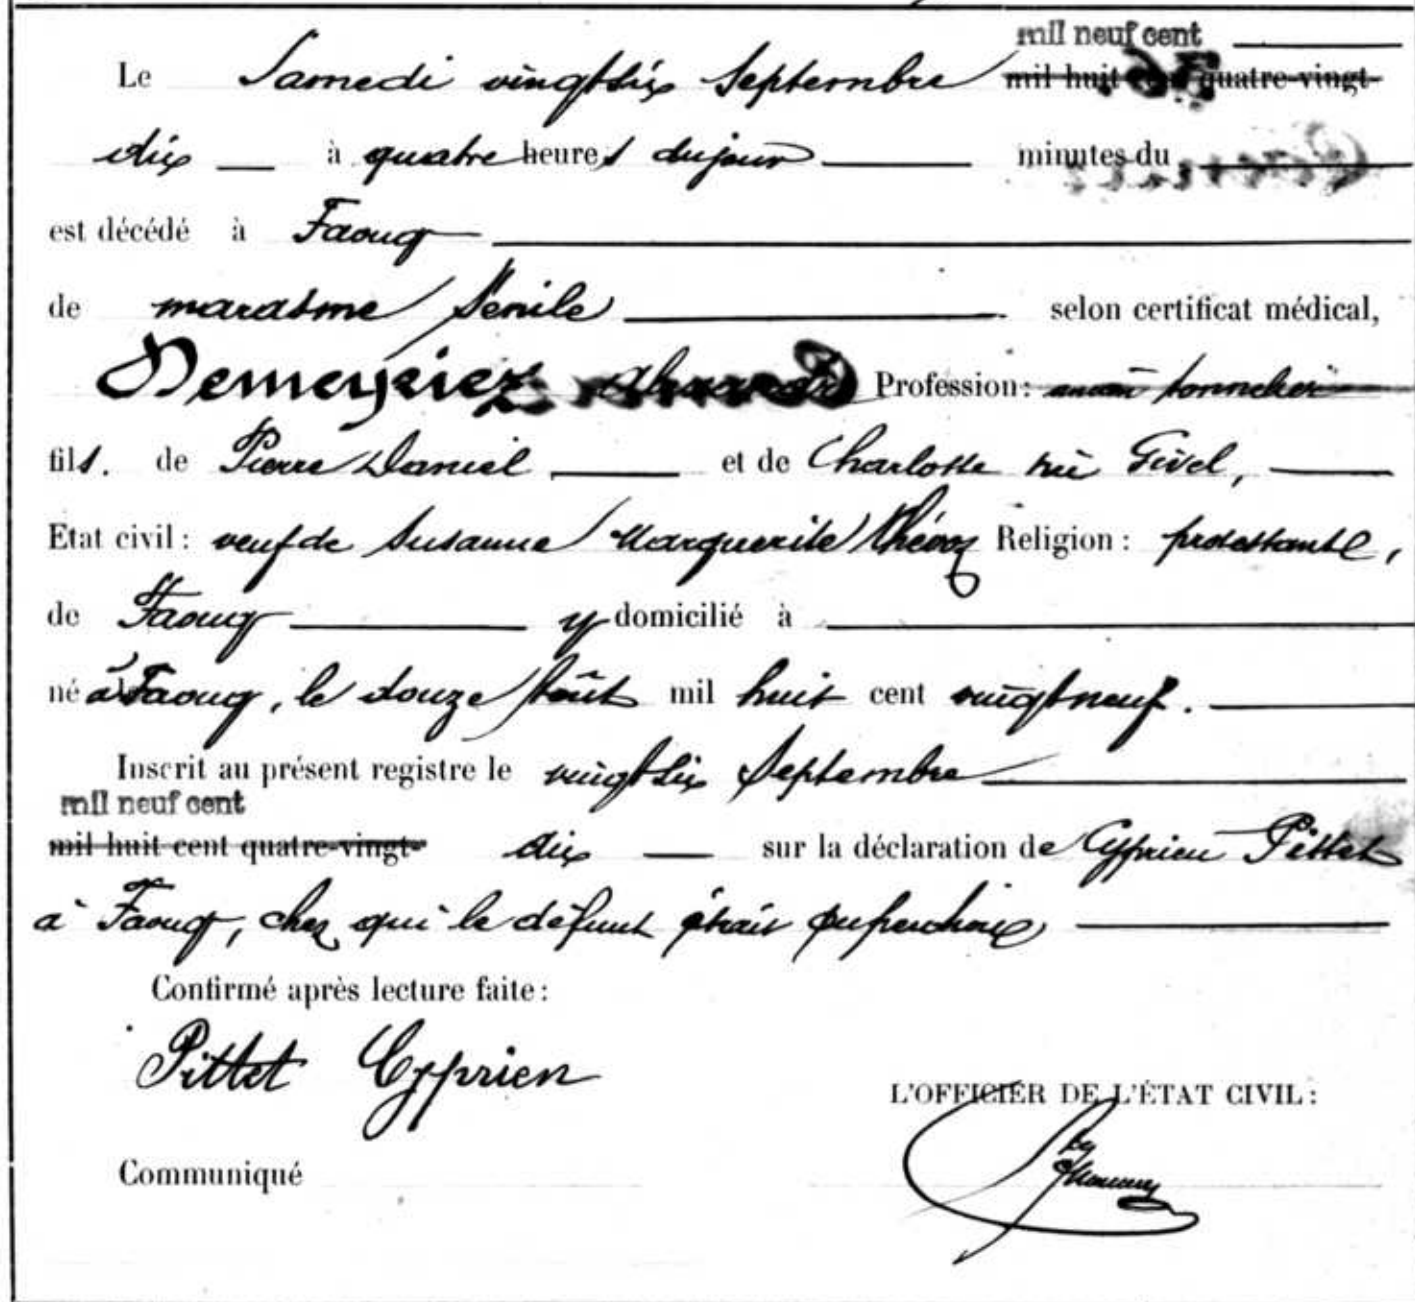 mil neuf cent
Le Samedi vingt six Septembre mil huit cent quatre-vingt-
dix à quatre heures du jour minutes du
est décédé à Faoug
de marasme sénile selon certificat médical,
Demeyriez Profession: tonnelier
fils. de Pierre Daniel et de Charlotte née Givel,
Etat civil: veuf de Susanne Marguerite Thévoz Religion: protestante,
de Faoug y domicilié à
né à Faoug, le douze Août mil huit cent vingt neuf.
Inscrit au présent registre le vingt six Septembre
mil neuf cent
mil huit cent quatre-vingt- dix sur la déclaration de Cyprien Pittet
à Faoug, chez qui le défunt était
Confirmé après lecture faite:
Pittet Cyprien
L'OFFICIER DE L'ÉTAT CIVIL:
Communiqué